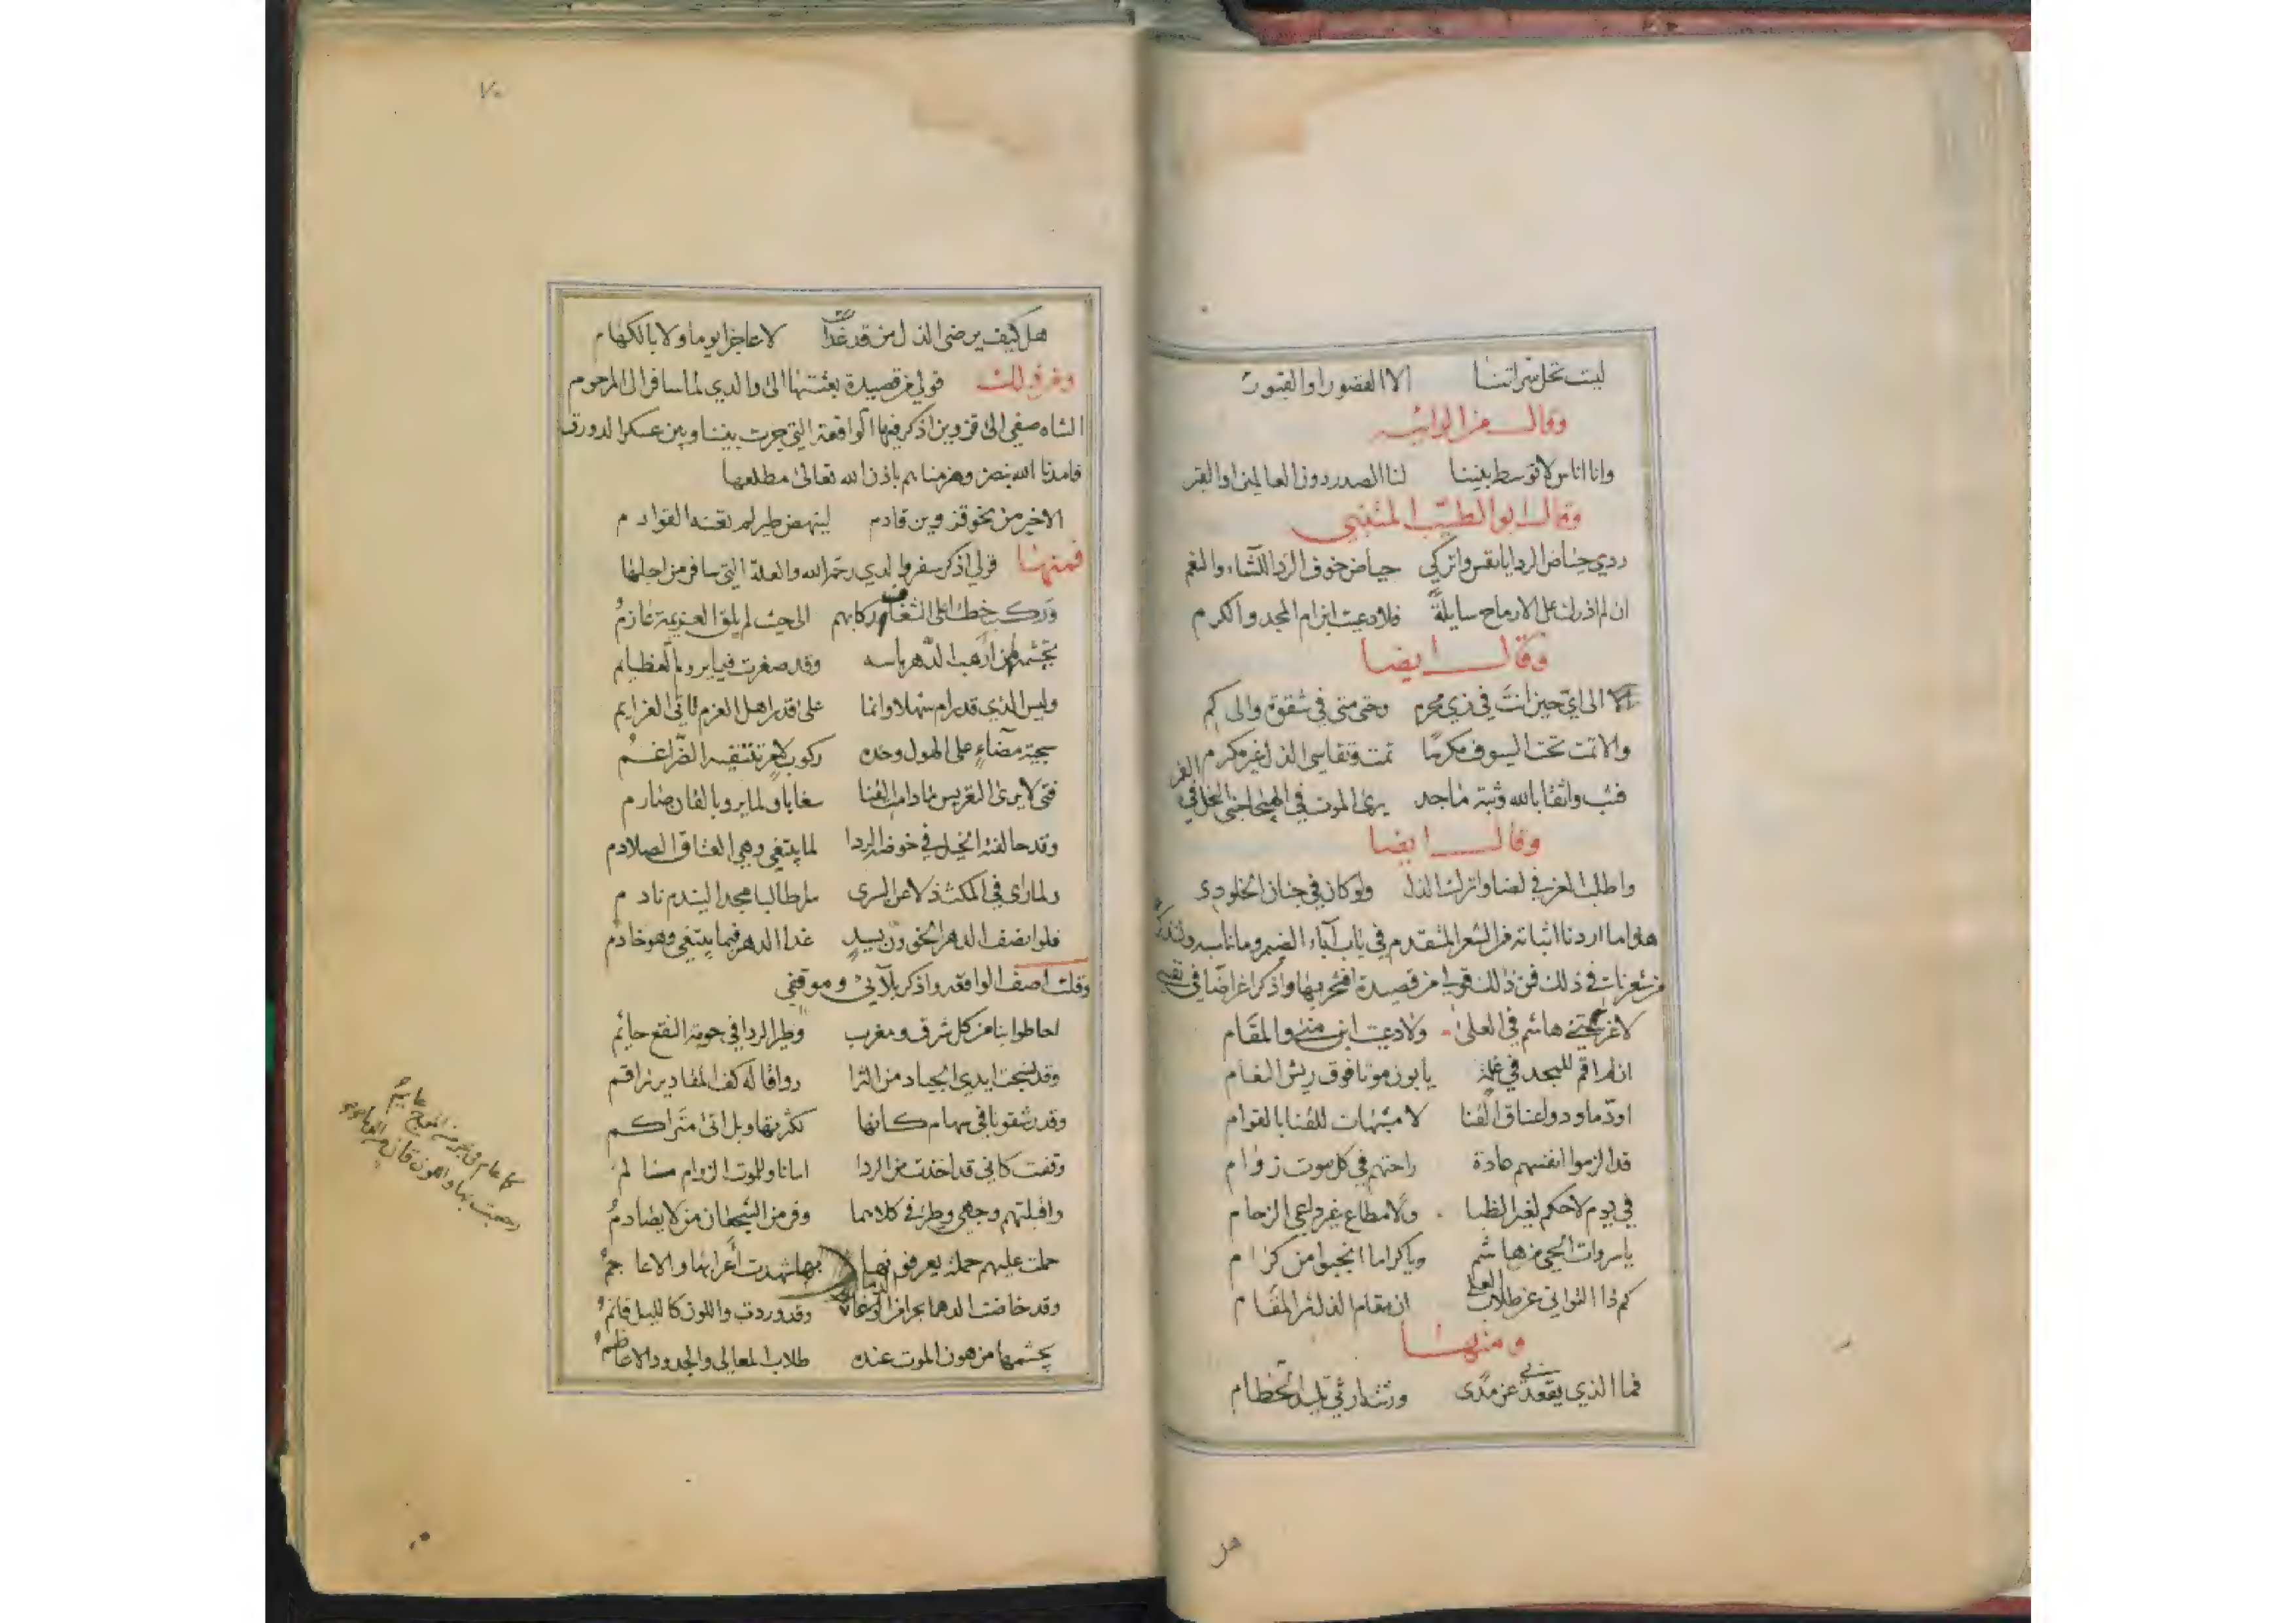 ليت تحل سراتنا الا القصور او القبور
وقال من الرائيه
وانا اناس لا توسط بيننا لنا الصدر دون العالمين او القبر
وقال ابو الطيب المتنبي
ردي حياض الردا يا نفس واتركي حياض خوف الردا للشاء والنعم
ان لم اذرك على الارماح سايلةً فلا دعيت ابن ام المجد والكرم
وقال ايضا
الى اي حين انت في زي محرم وحتى متى في شقوة والى كم
والا تمت تحت السيوف مكرمًا تمت وتقاسي الذل غير مكرم
فثب واثقا بالله وثبة ماجد يرى الموت في الهيجا جنى النحل في الفم
وقال ايضا
واطلب العز في لضا واترك الذل ولو كان في جنان الخلود
هذا ما اردنا اثباته من الشعر المتقدم في باب آباء الضيم وما ناسبه ولنذكر
من شعرنا في ذلك فمن ذلك قولي من قصيدة افتخر بها واذكر اغراضا في نفسي
لا عرقتني هاشم في العلى ولا دعيت ابن منى والمقام
ان لم اقم للمجد في غلمة يابون موتا فوق ريش النعام
اودّ ما ودوا عناق القنا لا مشبهات للقنا بالقوام
قد الزموا انفسهم عادة راحتهم في كل موت زوام
في يوم لا حكم لغير الظبا ولا مطاع غير داعي الزحام
يا سروات الحي من هاشم ويا كراما انجبوا من كرام
كم ذا التواني عن طلاب العلى ان مقام الذل شر المقام
ومنها
فما الذي يقعدني عن مدى ورتبة
هل
٧٠
هل كيف يرضى الذل من قد غدا لا عاجزا يوما ولا بالكهام
ومن ذلك قولي من قصيدة بعثتها الى والدي لما سافر الى المرحوم
الشاه صفي الى قزوين اذكر فيها الواقعة التي جرت بيننا وبين عسكر الدورق
فامدنا الله بنصره وهزمناهم باذن الله تعالى مطلعها
الا خبر من نحو قزوين قادم لينهض طير لم تعنه القوادم
فمنها قولي اذكر سفر والدي رحمه الله والعلة التي سافر من اجلها
الى حيث لم يلق العزيمة عازمُ
تجشمها من ارهب الدهر باسه وقد صغرت فيما يروم العظايم
وليس الذي قد رام سهلا وانما على قدر اهل العزم تاتي العزايم
سجية مضاءٍ على الهول وحده ركوب لامر تتقيه الضراغمُ
فتى لا يرى التعريس ما دامت القنا سغابا ولما يرو بالقان صارم
وقد حالفته الخيل في خوضه الردا لما يبتغي وهي العتاق الصلادم
ولما راى في المكث ذلا عن السرى سار طالبا مجدا ليندم نادم
فلو انصف الدهر الخؤون بسيدٍ غدا الدهر فيما يبتغي وهو خادم
وقلت اصف الواقعه واذكر بلآئي وموقفي
احاطوا بنا من كل شرق ومغرب وطير الردا في حومة النقع حايم
وقد نسجت ايدي الجياد من الثرا رواقا له كف المقادير راقم
وقد رشقونا في سهام كانها لكثرتها وبل اتى متراكم
وقفت كاني قد اخذت من الردا امانا وللموت الزوام مسالم
واقبلتهم وجهي وطرفي كلاهما وفر من الشجعان من لا يصادمُ
حملت عليهم حملة يعرفونها بها شهدت أعرابها والاعاجمُ
وقد خاضت الدهما بحرا من وقد وردت واللون كالليل قاتمُ
يجشمها من هون الموت عنده طلاب المعالي والجدود الاعاظمُ
كما عام في بحر من
رجعت بها واللون قان